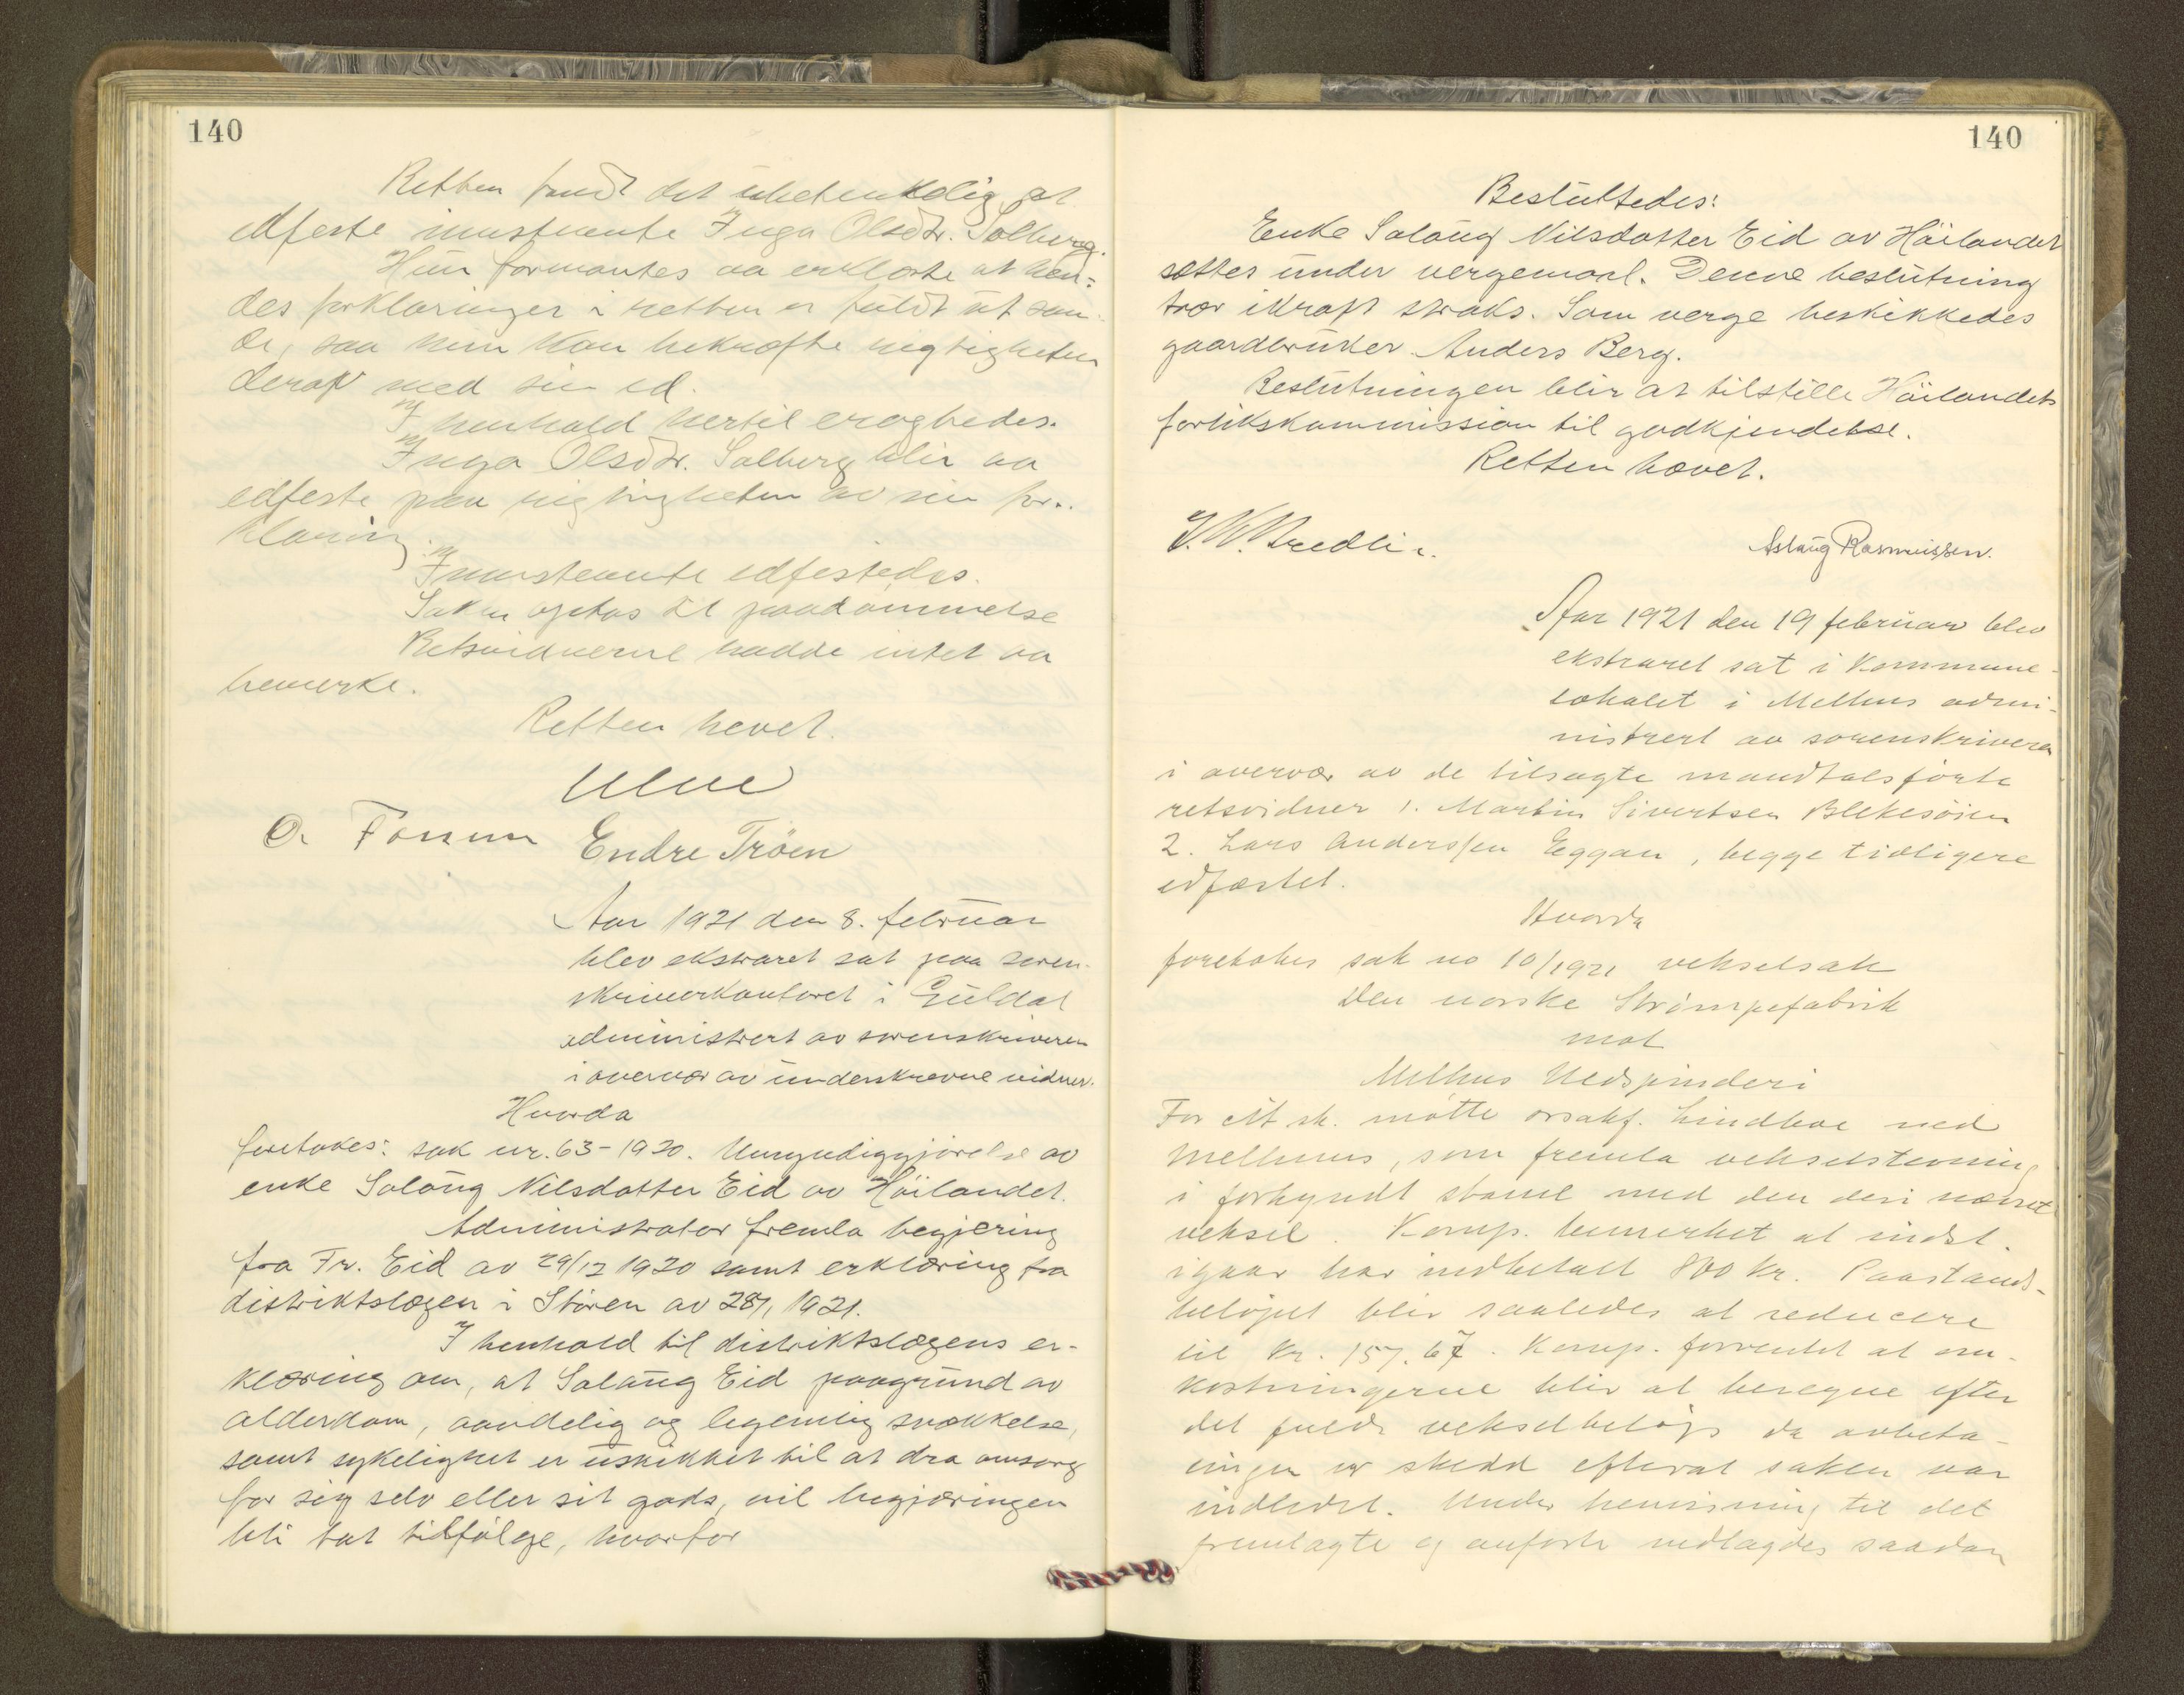 140
Retten fandt det ubetenkelig at
edfeste innstevnte Inga Olsdtr. Solberg.
Hun formantes aa erklærte at hen-
des forklaringer i retten er fuldt ut san-
de, saa hun kan bekræfte rigtigheten
derav med sin ed.
I henhold hertil eragtedes.
Inga Olsdtr. Solberg blir aa
edfeste paa rigtigheten av sin for-
klaring.
Innstevnte edfestedes.
Saken optas til paadømmelse
Retsvidnerne hadde intet aa
bemerke.
Retten hevet.
O. Fossum Endre Trøen
Aar 1921 den 8. februar
blev ekstraret sat paa soren-
skriverkontoret i Guldal
administrert av sorenskriveren
i overvær av underskrevne vidner.
Hvorda
foretokes: sak nr. 63-1920. Umyndiggjørelse av
enke Solaug Nilsdatter Eid av Höilandet.
Administrator fremla begjering
fra Fr. Eid av 29/12 1920 samt erklæring fra
distriktslægen i Støren av 28/1 1921.
I henhold til distriktslægens er-
klæring om, at Solaug Eid paagrund av
alderdom, aandelig og legemlig svækkelse,
samt sykelighet er uskikket til at dra omsorg
for sig selv eller sit gods, vil begjæringen
bli tat tilfølge, hvorfor
140
Besluttedes:
Enke Solaug Nilsdatter Eid av Höilandet
sættes under vergemaal. Denne beslutning
trær ikraft straks. Som verge beskikkedes
gaardbruker Anders Berg.
Beslutningen blir at tilstille Höilandets
forlikskommission til godkjendelse.
Retten hævet.
Aslaug Rasmussen.
Aar 1921 den 19 februar blev
ekstraret sat i kommune-
lokalet i Melhus admi-
nistrert av sorenskriveren
i overvær av de tilsagte mandtalsførte
retsvidner 1. Martin Sivertsen Blekesøien
2. Lars Anderssen Eggan, begge tidligere
edfæstet.
Hvorda
foretokes sak no 10/1921 vekselsak
Den norske Strømpefabrik
mot
Melhus Uldspinderi
For cit.sk. møtte orsakf. Lindboe ved
Melhuus, som fremla vekselstevning
i forkyndt stand med den deri nævnte
veksel. Komp. bemerket at indst.
igaar har indbetalt 800 kr. Paastands-
beløpet blir saaledes at reducere
til kr. 157.67. Komp. formente at om-
kostningerne blir at beregne efter
det fulde vekselbeløp da avbeta-
lingen er skedd efterat saken var
indledet. Under henvisning til det
fremlagte og anførte nedlagdes saadan